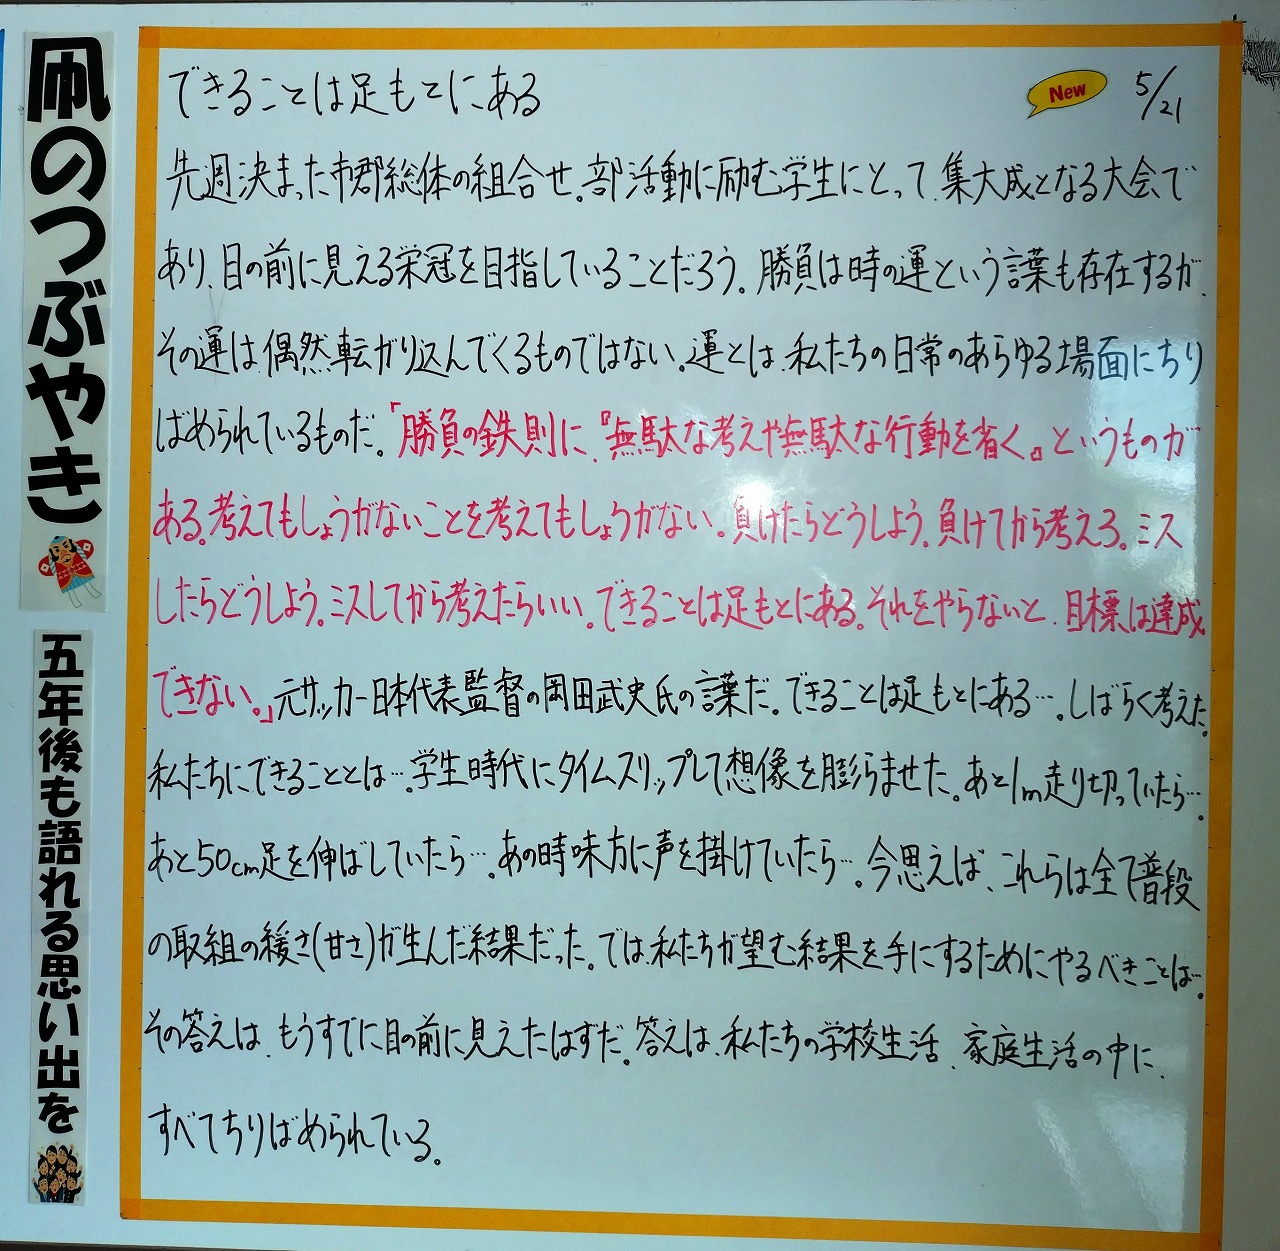 凧のつぶやき
五年後も語れる思い出を
できることは足もとにある
New
5/21
先週決まった市郡総体の組合せ。部活動に励む学生にとって、集大成となる大会で
あり、目の前に見える栄冠を目指していることだろう。勝負は時の運という言葉も存在するが、
その運は偶然転がり込んでくるものではない。運とは、私たちの日常のあらゆる場面にちり
ばめられているものだ。「勝負の鉄則に、『無駄な考えや無駄な行動を省く。』というものが
ある。考えてもしょうがないことを考えてもしょうがない。負けたらどうしよう。負けてから考えろ。ミス
したらどうしよう。ミスしてから考えたらいい。できることは足もとにある。それをやらないと、目標は達成
できない。」元サッカー日本代表監督の岡田武史氏の言葉だ。できることは足もとにある…。しばらく考えた。
私たちにできることとは…。学生時代にタイムスリップして想像を膨らませた。あと1m走り切っていたら…。
あと50cm足を伸ばしていたら…。あの時味方に声を掛けていたら…。今思えば、これらは全て普段
の取組の緩さ(甘さ)が生んだ結果だった。では、私たちが望む結果を手にするためにやるべきことは…。
その答えは、もうすでに目の前に見えたはずだ。答えは、私たちの学校生活、家庭生活の中に、
すべてちりばめられている。